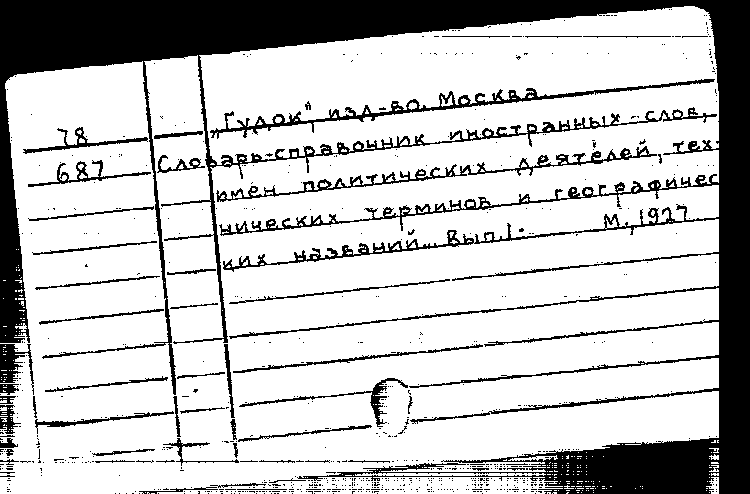 78 „Гудок", изд-во. Москва.
687 Словарь-справочник иностранных слов,
имен политических деятелей, тех-
нических терминов и географичес
ких названий... Вып.1- М., 1927